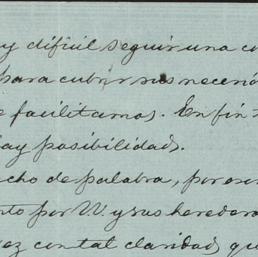 y difícil seguir una co
para cubrir sus necesi
e facilitamos. En fin
hay posibilidad.
cho de palabra, por es
nto por VV. y sus heredero
vez con tal claridad, qu